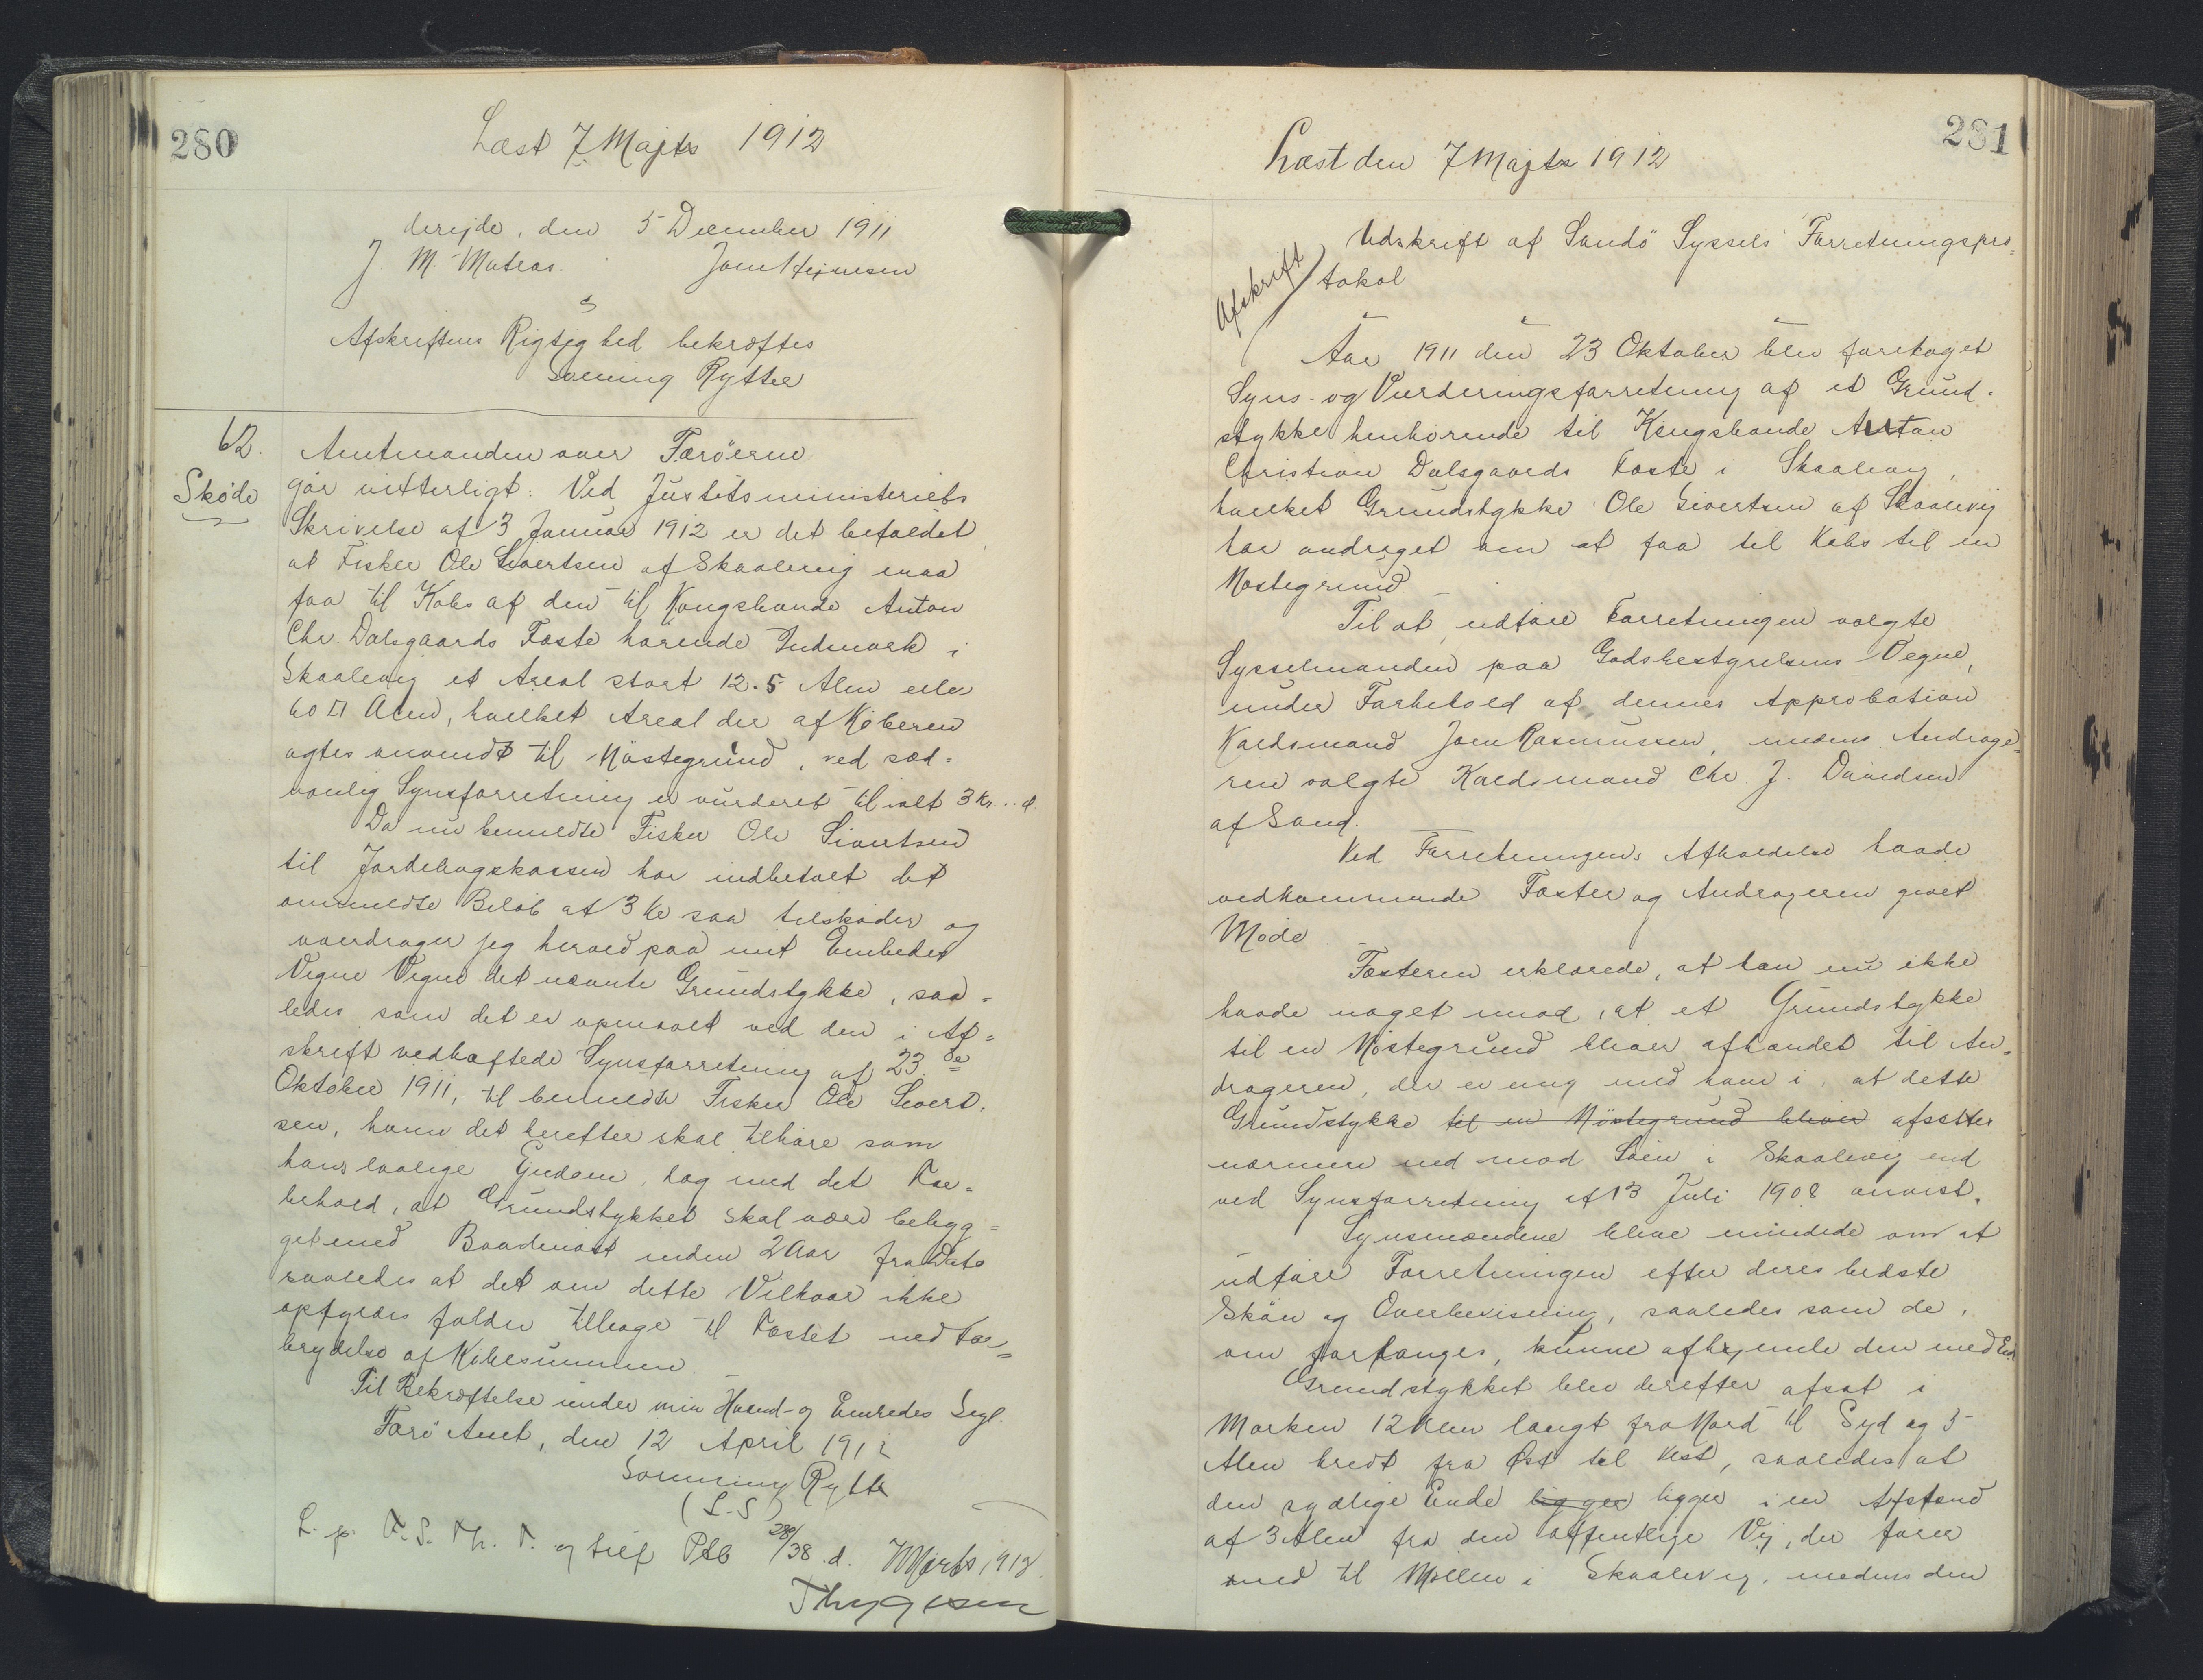 280
Læst 7 Majts 1912
derejde, den 5 December 1911
J. M. Matras. Joen Hejnesen
Afskriftens Rigtighed bekræftes
Sørning Rytter
62.
Skøde
Amtmanden over Færöerne
gör vitterligt: Ved Justitsministeriets
Skrivelse af 3 Januar 1912 er det befaldet
at Fisker Ole Sivertsen af Skaalevig maa
faa til Købs af den til Kongsbonde Anton
Chr. Dalsgaards Fæste hørende Indmark i
Skaalevig et Areal stort 12.5 Alen eller
60 □ Alen, hvilket Areal der af Köberen
agtes anvendt til Nöstegrund, ved sæd=
vanlig Synsforretning er vurderet til ialt 3 Kr. .. d.
Da nu bemeldte Fisker Ole Sivertsen
til Jordebogskassen har indbetalt det
ommeldte Belöb af 3 Kr saa tilskøder og
overdrager jeg herved paa mit Embedes
Vegne Vegne det nævnte Grundstykke, saa=
ledes som det er opmaalt ved den i Af=
skrift vedhæftede Synsforretning af 23de
Oktober 1911, til bemeldte Fisker Ole Sivert.
sen, ham det herefter skal tilhøre som
hans lovlige Ejendom, dog med det For=
behold, at Grundstykket skal være bebyg=
get med Baadenöst inden 2 Aar fra Dato
saaledes at det om dette Vilkaar ikke
opfyldes falder tilbage til Fæstet mod For=
brydelse af Købesummen.
Til Bekræftelse under min Haand- og Embedes Segl.
Færö Amt, den 12 April 1912
Sørning Rytter
(L.S)
L. p. F. S. Th. F. og tilf Ptb 280/38. d. 7 Marts 1912.
Thygesen
281
Læst den 7 Majts 1912
Afskrift
Udskrift af Sandö Syssels Forretningspro=
tokol
Aar 1911 den 23 Oktober blev foretaget
Syns- og Vurderingsforretning af et Grund.
stykke henhørende til Kongsbonde Anton
Christian Dalsgaards Fæste i Skaalevig,
hvilket Grundstykke Ole Sivertsen af Skaalevig
har andraget om at faa til Købs til en
Nøstegrund
Til at udføre Forretningen valgte
Sysselmanden paa Godsbestyrelsens Vegne,
under Forbehold af dennes Approbation
Kaldsmand Joen Rasmussen, medens Andrage=
ren valgte Kaldsmand Chr. J. Davidsen
af Sand.
Ved Forretningens Afholdelse havde
vedkommende Fæster og Andrageren givet
Møde
Fæsteren erklærede, at han nu ikke
havde noget imod, at et Grundstykke
til en Nøstegrund bliver afhændet til An=
drageren, der er enig med ham i, at dette
Grundstykke til en Nöstegrund bliver afsættes
nærmere ned mod Söen i Skaalevig end
ved Synsforretning af 13 Juli 1908 anvist.
Synsmændene bleve mindede om at
udføre Forretningen efter deres bedste
Skön og Overbevisning, saaledes som de,
om forlanges, kunne afhjemle den med Ed
Grundstykket blev derefter afsat i
Marken 12 Alen langt fra Nord til Syd og 5
Alen bredt fra Øst til Vest, saaledes at
den sydlige Ende ligger ligger i en Afstand
af 3 Alen fra den offentlige Vej, der fører
ned til Møllen i Skaalevig, medens den